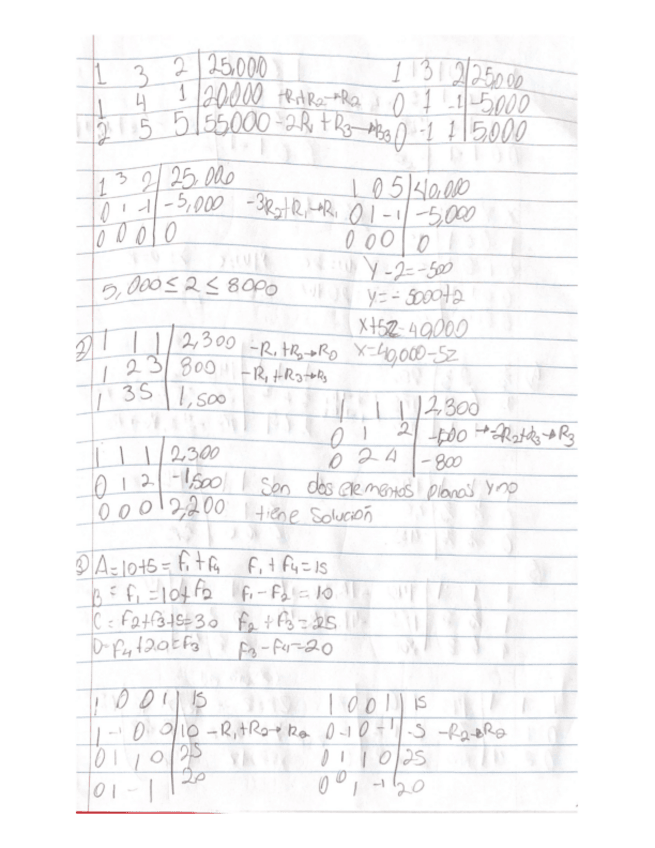 1 3 2 | 25,000
1 4 1 | 20,000 -R1+R2→R2
2 5 5 | 55,000 -2R1+R3→R3
1 3 2 | 25,000
0 1 -1 | -5,000
0 -1 1 | 5,000
1 3 2 | 25,000
0 1 -1 | -5,000 -3R2+R1→R1
0 0 0 | 0
1 0 5 | 40,000
0 1 -1 | -5,000
0 0 0 | 0
Y-2=-500
5,000 ≤ 2 ≤ 8000
y=-5000+2
x+5z=40,000
x=40,000-5z
2) 1 1 1 | 2,300 -R1+R2→R2
1 2 3 | 800 -R1+R3→R3
1 3 5 | 1,500
1 1 1 | 2,300
0 1 2 | -1,500 →-2R2+R3→R3
0 2 4 | -800
1 1 1 | 2,300
0 1 2 | -1,500 Son dos elementos planos y no
0 0 0 | 2,200 tiene solución
3) A=10+5=f1+f4 f1+f4=15
B= f1=10+f2 f1-f2=10
C= f2+f3+5=30 f2+f3=25
D= f4+20=f3 f3-f4=20
1 0 0 1 | 15
1 - 0 0 | 10 -R1+R2→R2
0 1 1 0 | 25
0 1 - 1 | 20
1 0 0 1 | 15
0 -1 0 -1 | -5 -R2→R2
0 1 1 0 | 25
0 0 1 -1 | 20